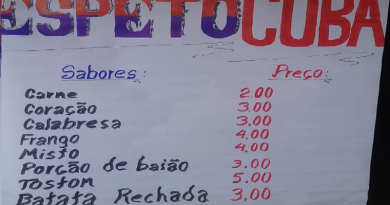 ESPETO CUBA
Sabores: Preço:
Carne 2.00
Coração 3.00
Calabresa 3.00
Frango 4.00
Misto 4.00
Porcão de baião 3.00
Toston 5.00
Batata Rechada 3,00